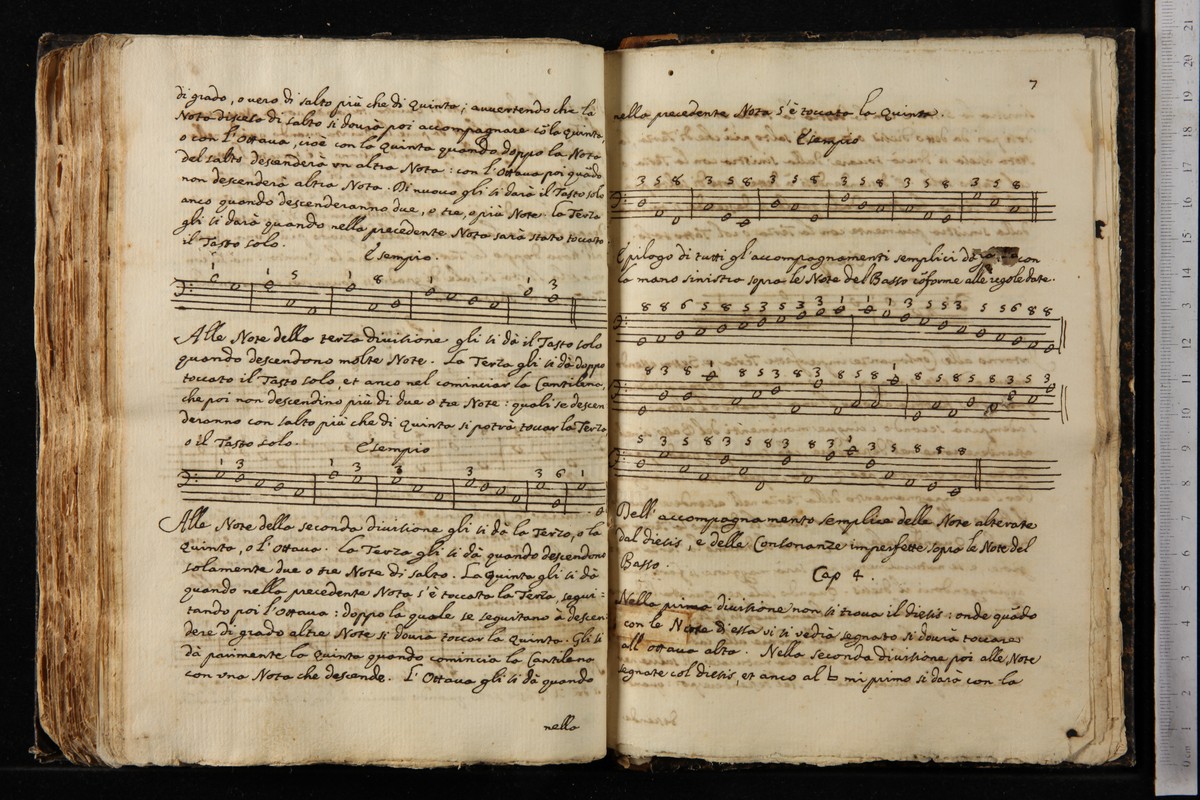 di grado, o uero di salto più che di Quinta; auuertendo che la
Nota disceso di salto si dourà poi accompagnare cõ la quinta,
o con l'Ottaua, cioè con la Quinta quando doppo la Nota
del salto descenderà un altra Nota: con l'Ottaua poi quãdo
non descenderà altra Nota. Di nuouo gli si darà il Tasto solo
anco quando descenderanno due, o tre, o più Note. la Terza
gli si darà quando nella precedente Nota sarà stato toccato
il Tasto solo.
Esempio.
1 1 5 1 8 1 1 3
Alle Note della terza diuisione gli si dà il Tasto solo
quando descendono molte Note. La Terza gli si dà doppo
toccato il Tasto solo, et anco nel cominciar la Cantilena,
che poi non descendino più di due o tre Note: quali se descen
deranno con salto più che di Quinta si potrà toccar la Terza
o il Tasto solo.
Esempio
1 3 1 3 3 3 3 6 1
Alle Note della seconda diuisione gli si dà la Terza, o la
Quinta, o l'Ottaua. la Terza gli si dà quando descendono
solamente due o tre Note di salto. La Quinta gli si dà
quando nella precedente Nota s'è toccata la Terza, segui:
tando poi l'Ottaua: doppo la quale se seguitano à descen
dere di grado altre Note si dourà toccar la Quinta. Gli si
dà parimente la Quinta quando comincia la Cantilena
con una Nota che descende. L'Ottaua gli si dà quando
nella
7
nella precedente Nota s'è toccata la Quinta.
Esempio
3 5 8 3 5 8 3 5 8 3 5 8 3 5 8 3 5 8
Epilogo di tutti gl'accompagnamenti semplici da con
la mano sinistra sopra le Note del Basso cõforme alle regole date.
8 8 6 5 8 5 3 5 3 3 1 1 1 3 5 5 3 5 5 6 8 8
8 3 8 1 8 5 3 8 3 5 8 1 8 5 8 5 8 3 5 3
5 3 5 8 3 5 8 3 8 3 1 3 5 8 8 8
Dell'accompagnamento semplice delle Note alterate
dal diesis, e delle Consonanze imperfette sopra le Note del
Basso.
Cap 4.
Nella prima diuisione non si troua il diesis: onde quãdo
con le Note di essa ui si vedrà segnato si dourà toccare
all'ottaua alta. Nella seconda diuisione poi alle Note
segnate col diesis, et anco al b mi primo si darà con la